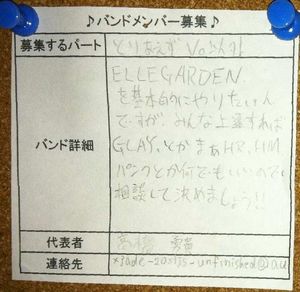 ♪バンドメンバー募集♪
募集するパート
とりあえず Vo以外
バンド詳細
ELLEGARDEN.
を基本的にやりたいん
ですが、みんな上達すれば
GLAY、とか まぁHR、HM、
パンクとか何でもいいので
相談して決めましょう!!
代表者
高橋
連絡先